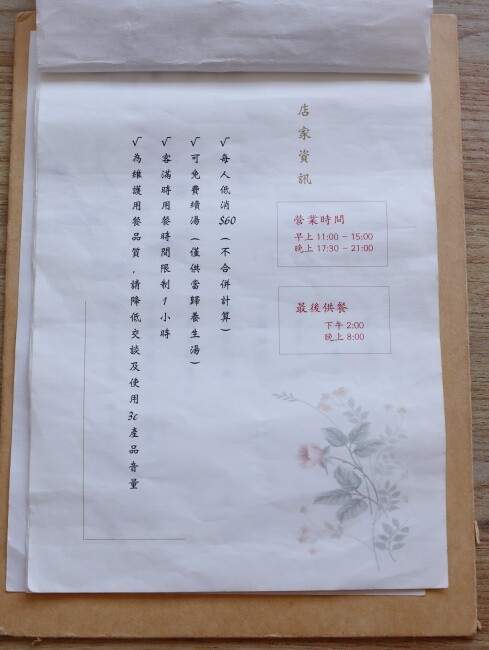 店家資訊
營業時間
早上 11:00 – 15:00
晚上 17:30 – 21:00
最後供餐
下午 2:00
晚上 8:00
√每人低消$60(不合併計算)
√可免費續湯(僅供當歸養生湯)
√客滿時用餐時間限制1小時
√為維護用餐品質,請降低交談及使用3c產品音量